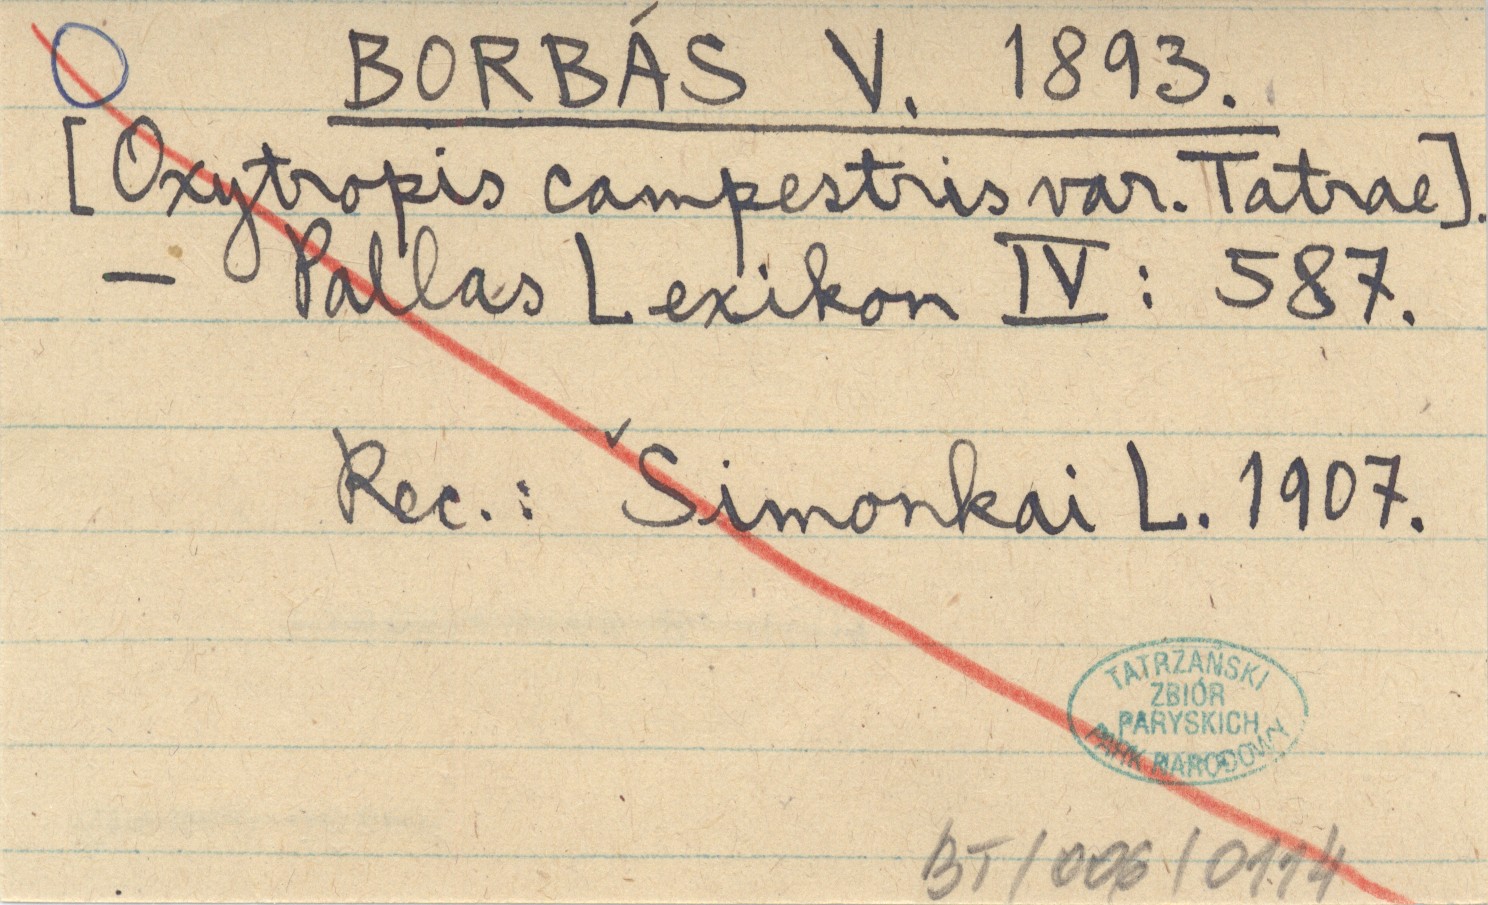 BORBÁS V. 1893.
[Oxytropis campestris var. Tatrae].
— Pallas Lexikon IV : 587.
Rec.: Šimonkai L. 1907.
TATRZAŃSKI
ZBIÓR
PARYSKICH
PARK NARODOWY
BT/006/0114